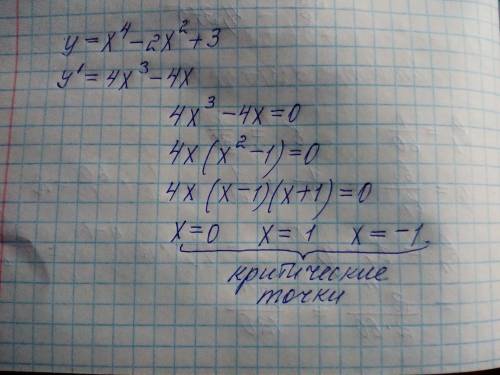 y = x⁴ - 2x² + 3
y' = 4x³ - 4x
4x³ - 4x = 0
4x(x² - 1) = 0
4x(x - 1)(x + 1) = 0
x = 0 x = 1 x = -1
критические
точки